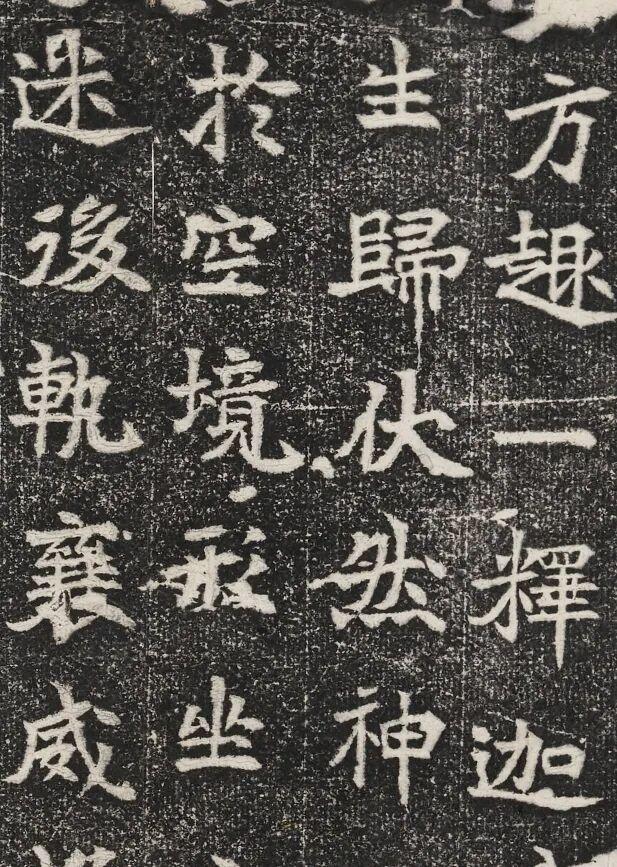 方趣一釋迦
生歸伏然神
於空境形坐
迷後軌襄威